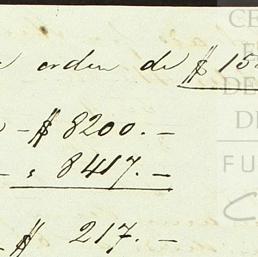 orden de $ 15
- $ 8200. -
- , 8417. -
- $ 217. -
CE
E
DE
DE
FU
C